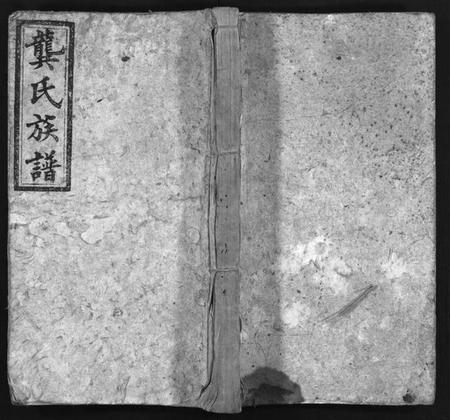 龔氏族譜